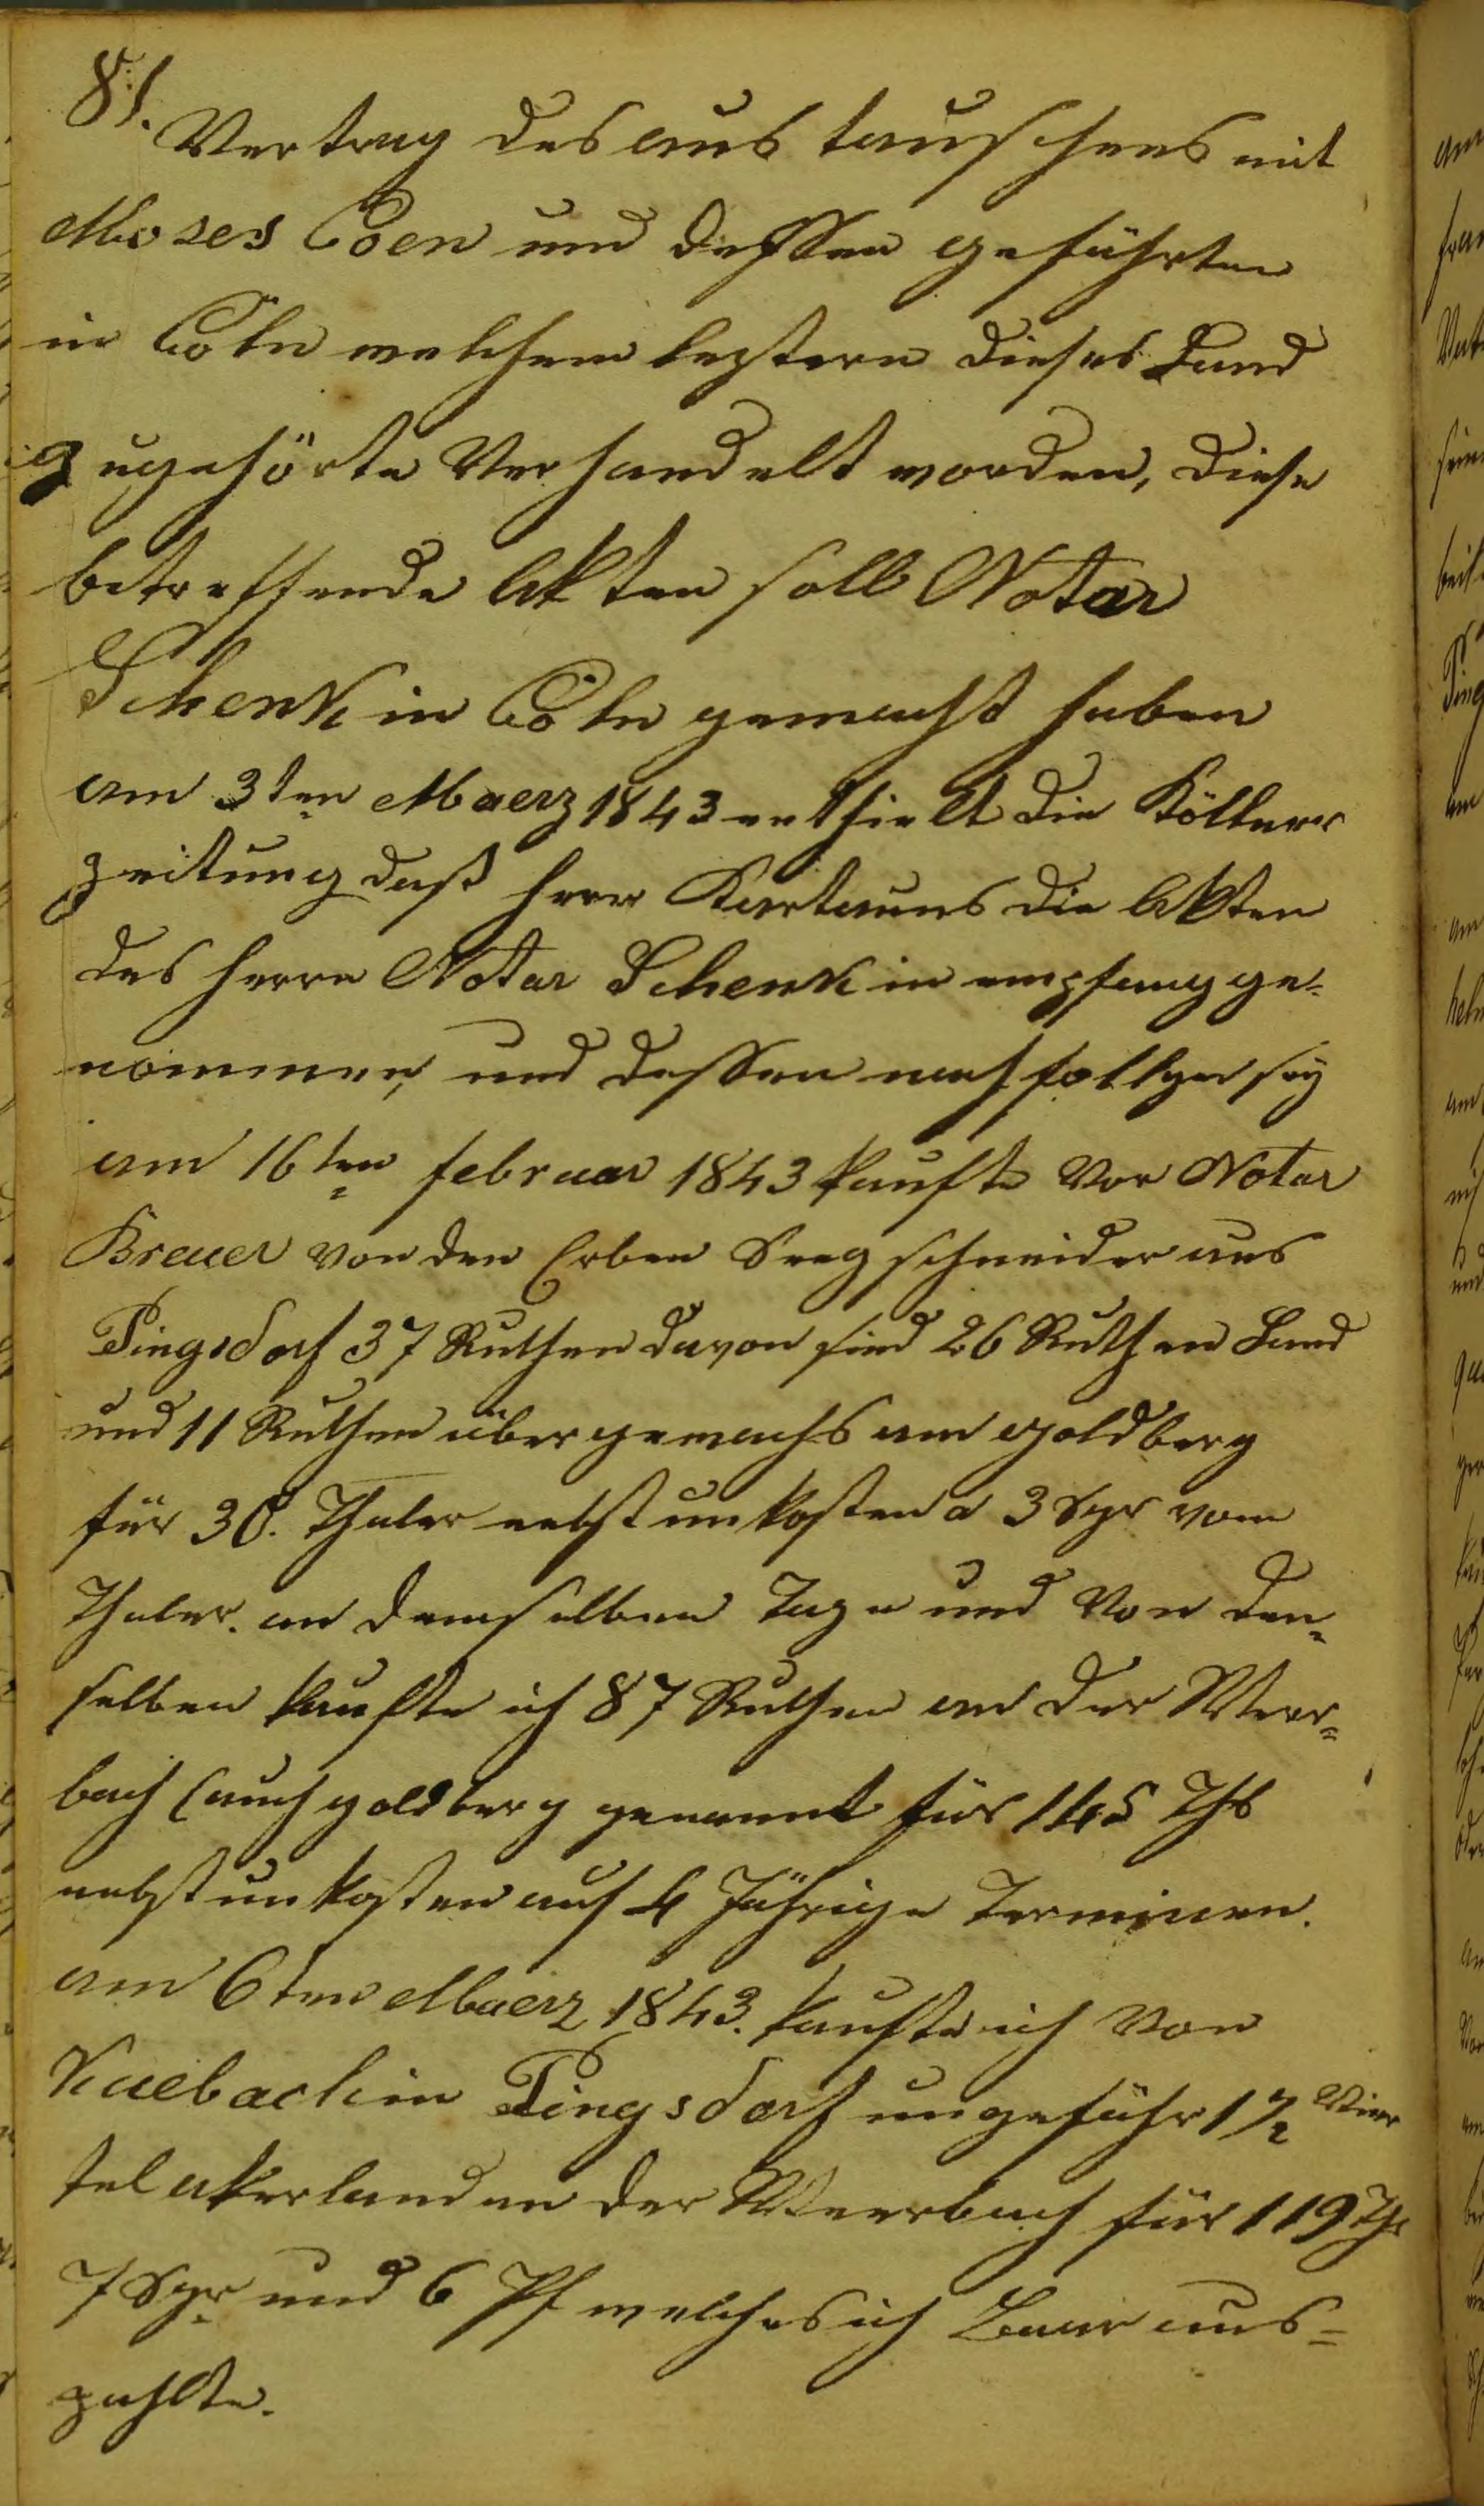 81.
Vertrag des aus tauschens mit
Moses Cöen und dessen gefährten
in Cöln welchem leztern dieses Land
zugehörte Verhandelt worden, diese
betreffende Akten soll Notar
Schenk in Cöln gemacht haben
am 3ten Maerz 1843 enthielt die Köllner
zeitung daß herr die Akten
des herrn Notar Schenk in empfang ge-
nommen, und dessen nachfollger seÿ
am 16ten februar 1843 kaufte Vor Notar
Breuer von den Erben Seegschneider aus
Pingsdorf 37 Ruthen davon sind 26 Ruthen Land
und 11 Ruthen übergemachs am goldberg
für 30. Thaler nebst unkosten a 3 Sgr vom
Thaler. an demselben Tage und Von den-
selben kaufte ich 87 Ruthen an der Meer-
bach (auch goldberg genannt für 145 Thl
nebst unkosten auf 4 Jährige Terminen.
am 6ten Maerz 1843. kaufte ich Von
Kuebach in Pingsdorf ungefähr 1 1/2 Vier
tel akerland an der Meerbach für 119 Thl
7 Sgr und 6 Pf welches ich Baar aus-
zahlte.